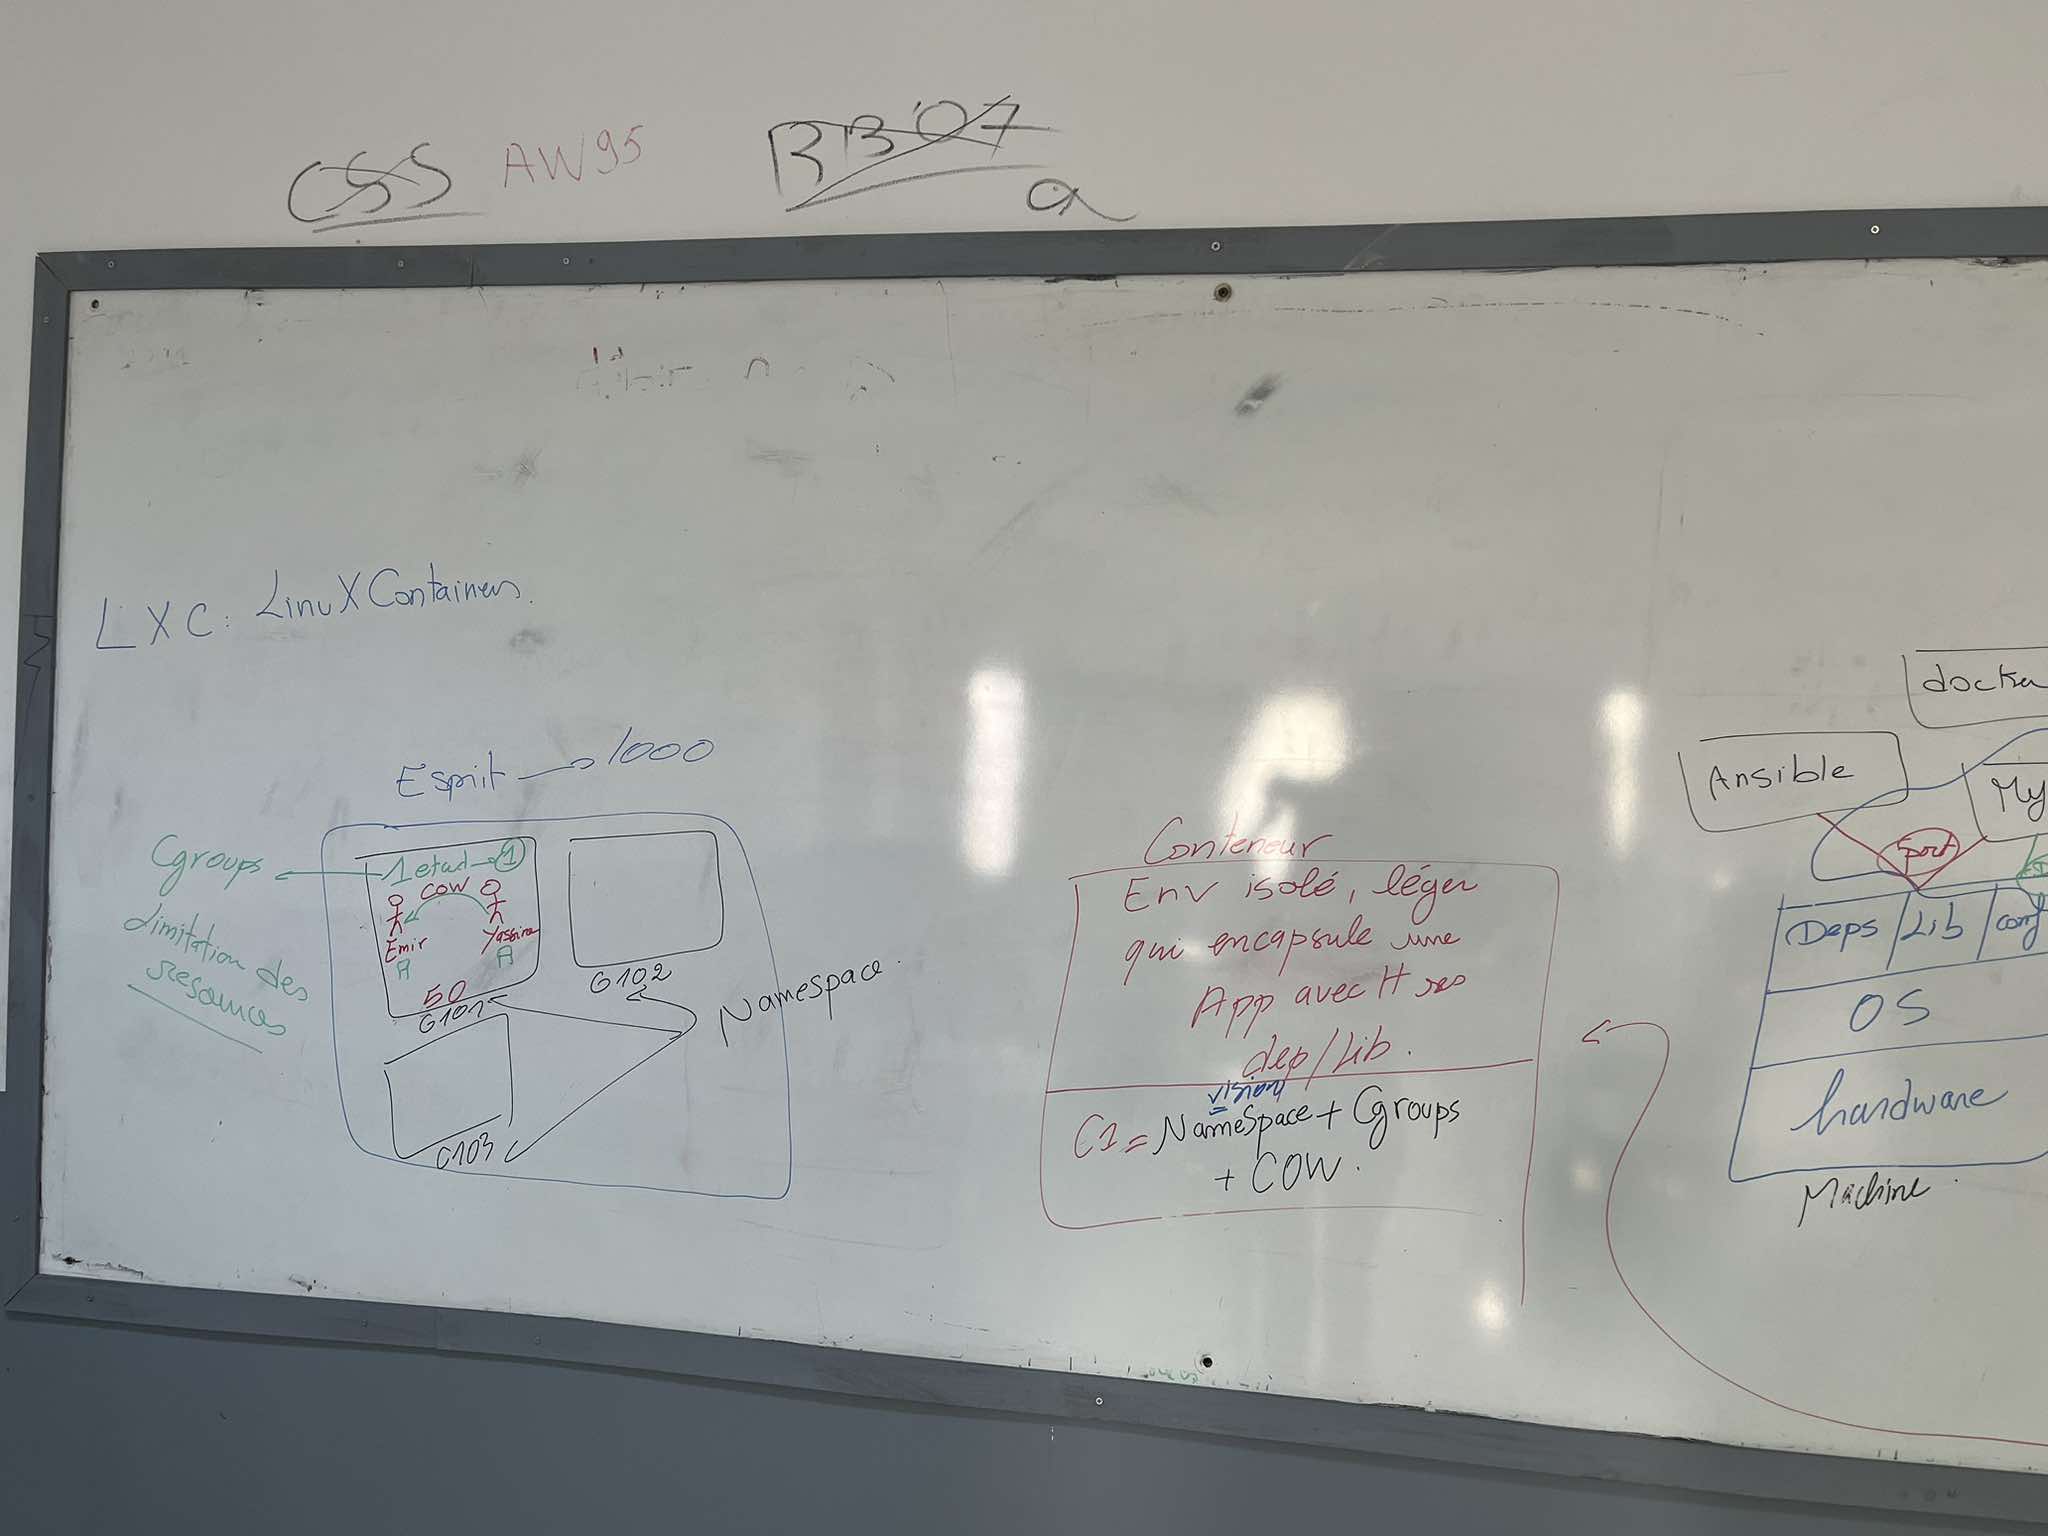 CSS AW95 BB07
a
LXC: LinuXContainers.
Esprit → 1000
Cgroups
Limitation des
ressources
1 etud → 1
COW
Emir Yassine
A A
50
G101
G102
G103
Namespace.
Conteneur
Env isolé, léger
qui encapsule une
App avec tt ses
dep/Lib.
vision
C1 = NameSpace + Cgroups
+ COW.
docker
Ansible
My
port
Deps Lib conf
OS
hardware
Machine.